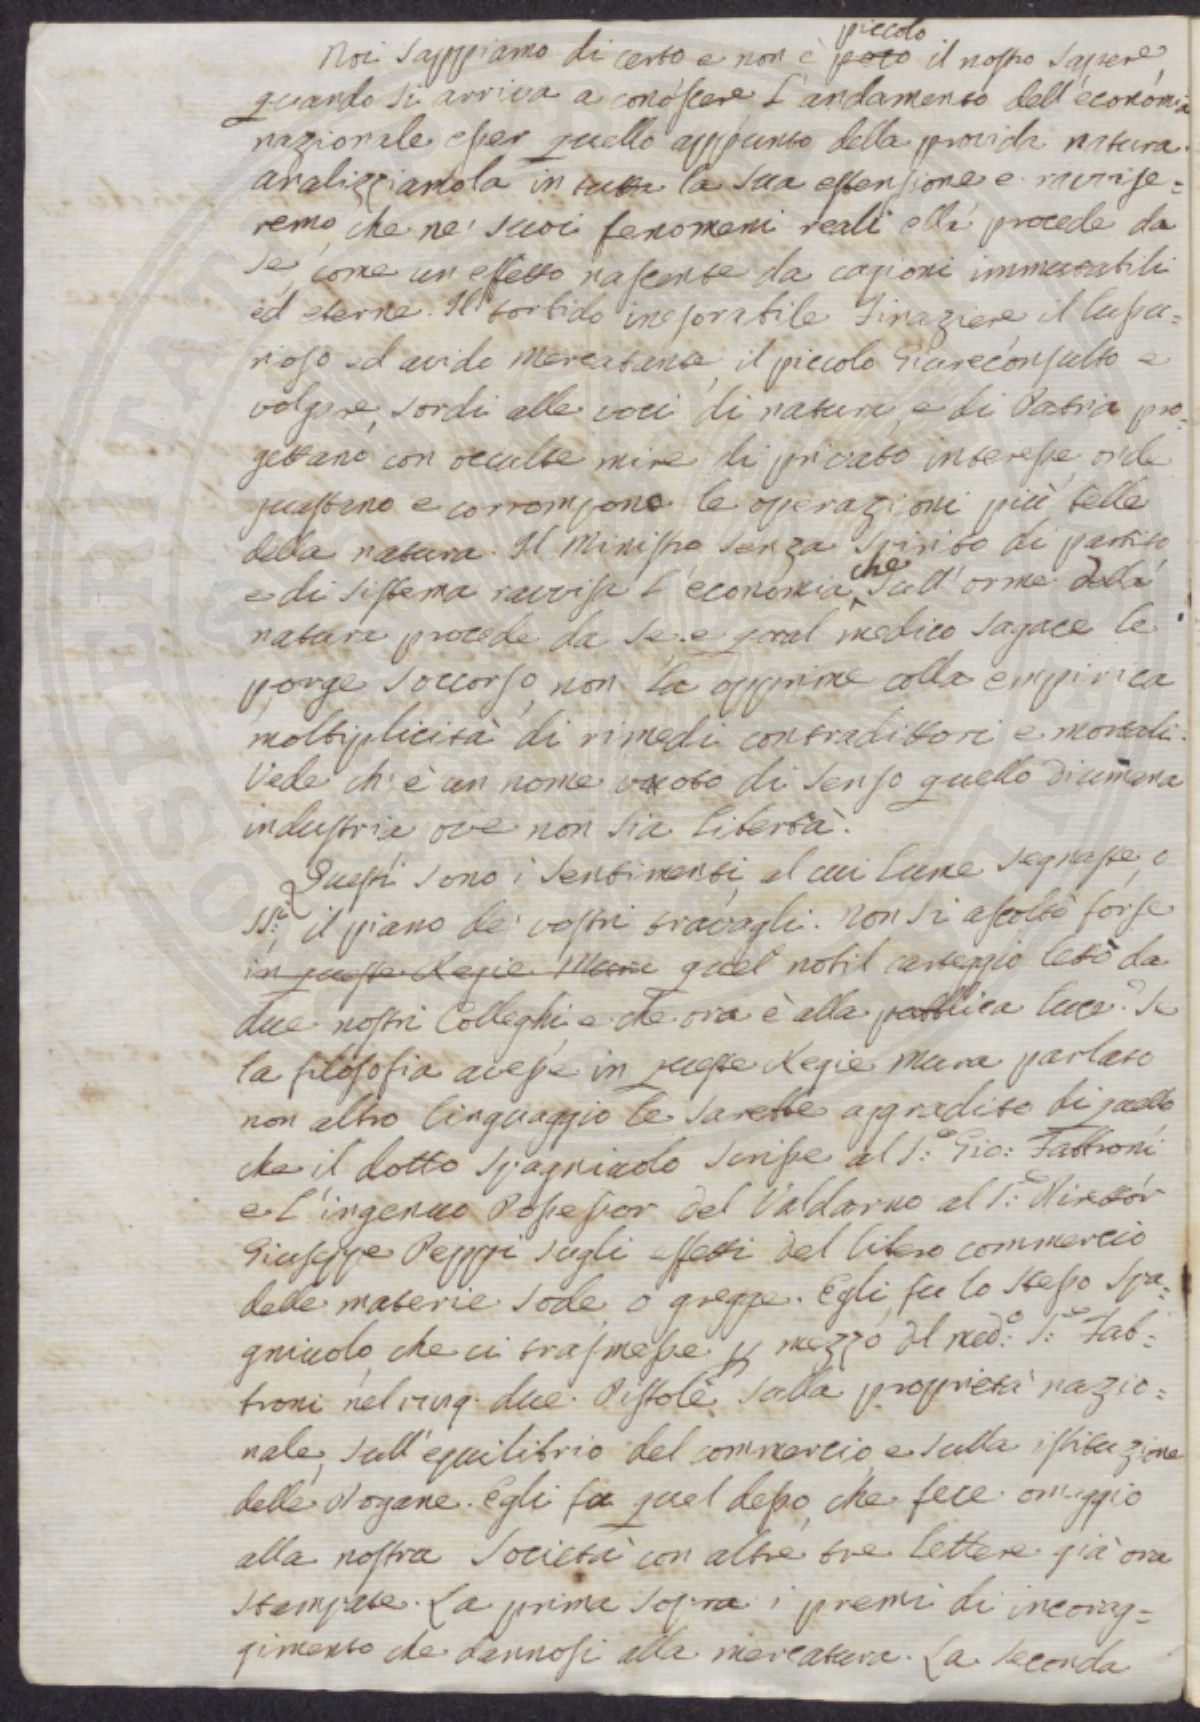 Noi sappiamo di certo e non è poco piccolo il nostro sapere
quando si arriva a conoscere l'andamento dell'economia
nazionale esser quello appunto della provida natura.
analizziamola in tutta la sua estensione e ravvise=
remo, che ne' suoi fenomeni reali ella procede da
se, come un effetto nascente da cagioni immutabili
ed eterne. Il sordido inesorabile Finaziere il lussu=
rioso ed avido Mercatante, il piccolo Giureconsulto e
volgare, sordi alle voci di natura, e di Patria pro=
gettano con occulte mire di privato interesse, onde
guastano e corrompono le operazioni più belle
della natura. Il Ministro senza spirito di partito,
e di sistema ravvisa l'economia, che sull'orme della
natura procede da se, e qual medico sagace le
porge soccorso, non la opprime colla empirica
moltiplicità di rimedi contradittori e mortali.
Vede ch'è un nome vuoto di senso quello d'umana
industria ove non sia libertà.
Questi sono i sentimenti, al cui lume segnaste, o
SS:ri, il piano de' vostri travagli. Non si ascoltò forse
in queste Regie Mura quel nobil carteggio letto da
due nostri Colleghi, e che ora è alla pubblica luce? Se
la filosofia avesse in queste Regie Mura parlato
non altro linguaggio le sarebbe aggradito di quello
che il dotto Spagniuolo scrisse al S:e Gio: Fabbroni
e l'ingenuo Possessor del Valdarno al S:e Direttor
Giuseppe Peppi sugli effetti del libero commercio
delle materie sode, o gregge. Egli fu lo stesso Spa=
gniuolo, che ci trasmesse p mezzo del med:o S:e Fab=
broni nel due Pistole sulla proprietà nazio=
nale, sull'equilibrio del commercio, e sulla istituzione
delle Dogane. Egli fu quel desso, che fece omaggio
alla nostra Società con altre tre lettere già ora
stampate. La prima sopra i premi di incorag=
gimento che dannosi alla mercatura. La seconda